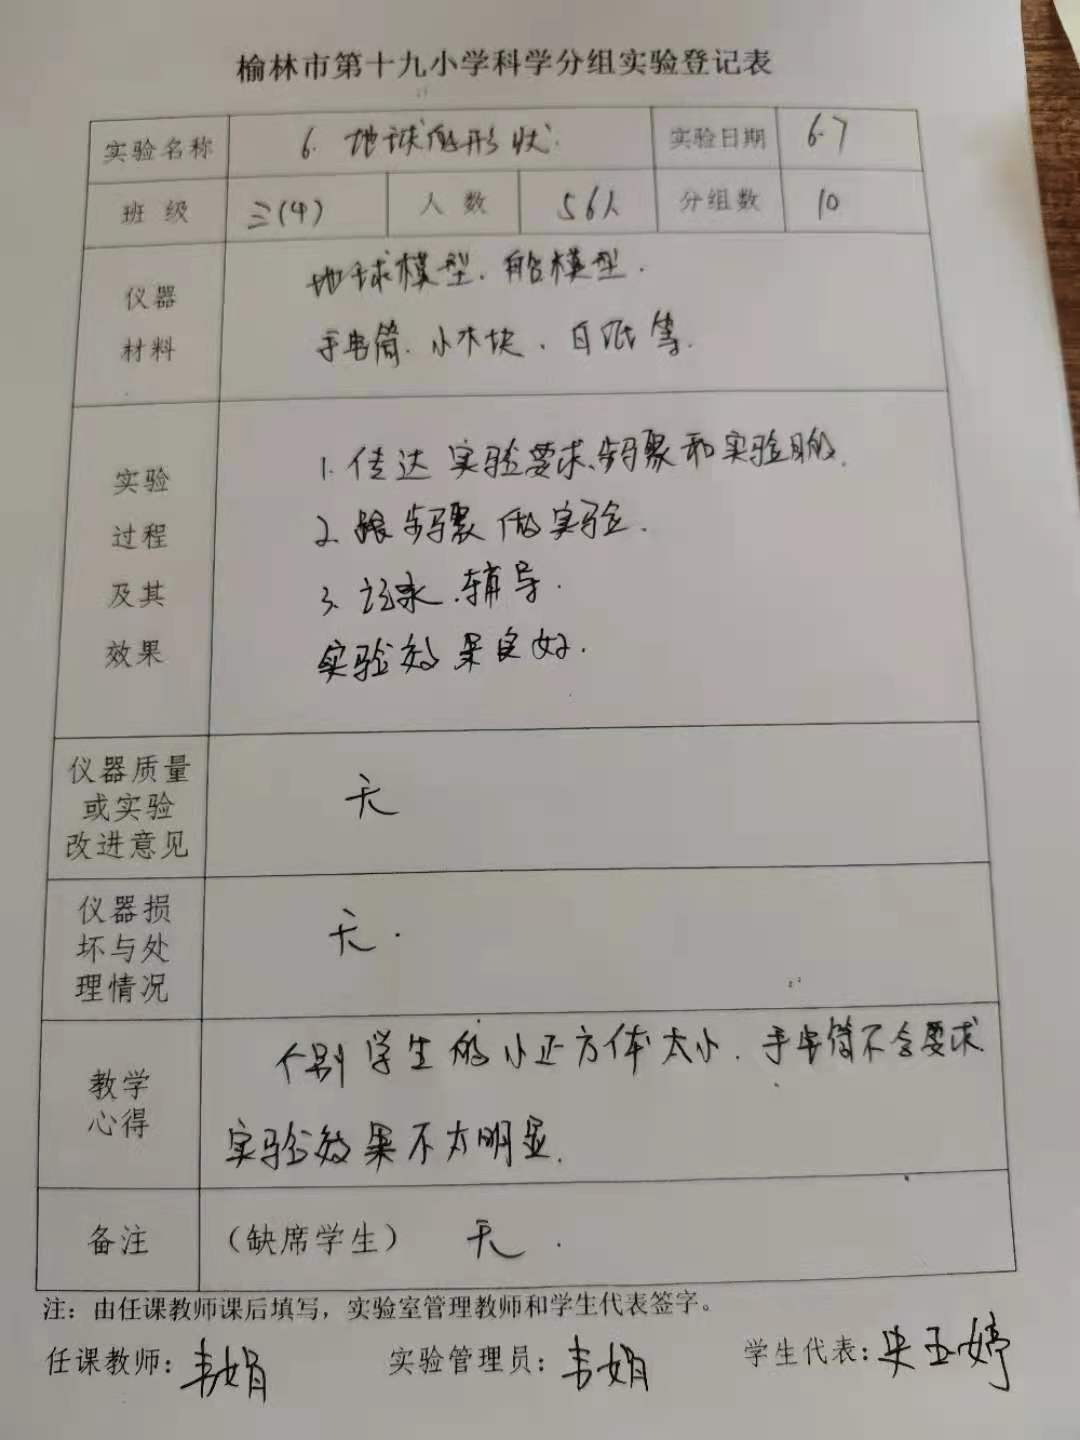 榆林市第十九小学科学分组实验登记表
实验名称 6. 地球的形状. 实验日期 6.7
班级 三(4) 人数 56人 分组数 10
仪器
材料
地球模型、船模型.
手电筒、小木块、白纸等.
实验
过程
及其
效果
1. 传达实验要求、步骤和实验目的.
2. 跟步骤做实验.
3. 记录、辅导.
实验效果良好.
仪器质量
或实验
改进意见
无
仪器损
坏与处
理情况
无.
教学
心得
个别学生的小正方体太小、手电筒不合要求
实验效果不太明显.
备注 (缺席学生) 无.
注：由任课教师课后填写，实验室管理教师和学生代表签字。
任课教师：韦娟 实验管理员：韦娟 学生代表：玉婷